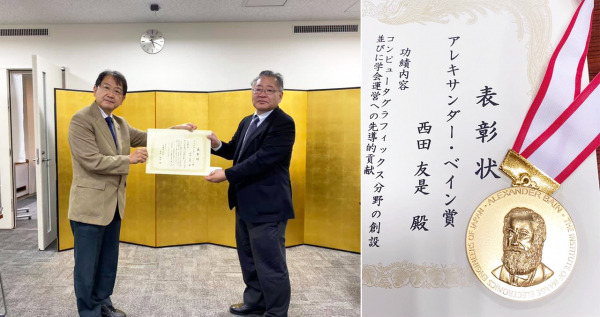 表彰状
アレキサンダー・ベイン賞
西田 友是 殿
功績内容
コンピュータグラフィックス分野の創設
並びに学会運営への先導的貢献
ALEXANDER BAIN
THE INSTITUTE OF IMAGE ELECTRONICS ENGINEERS OF JAPAN